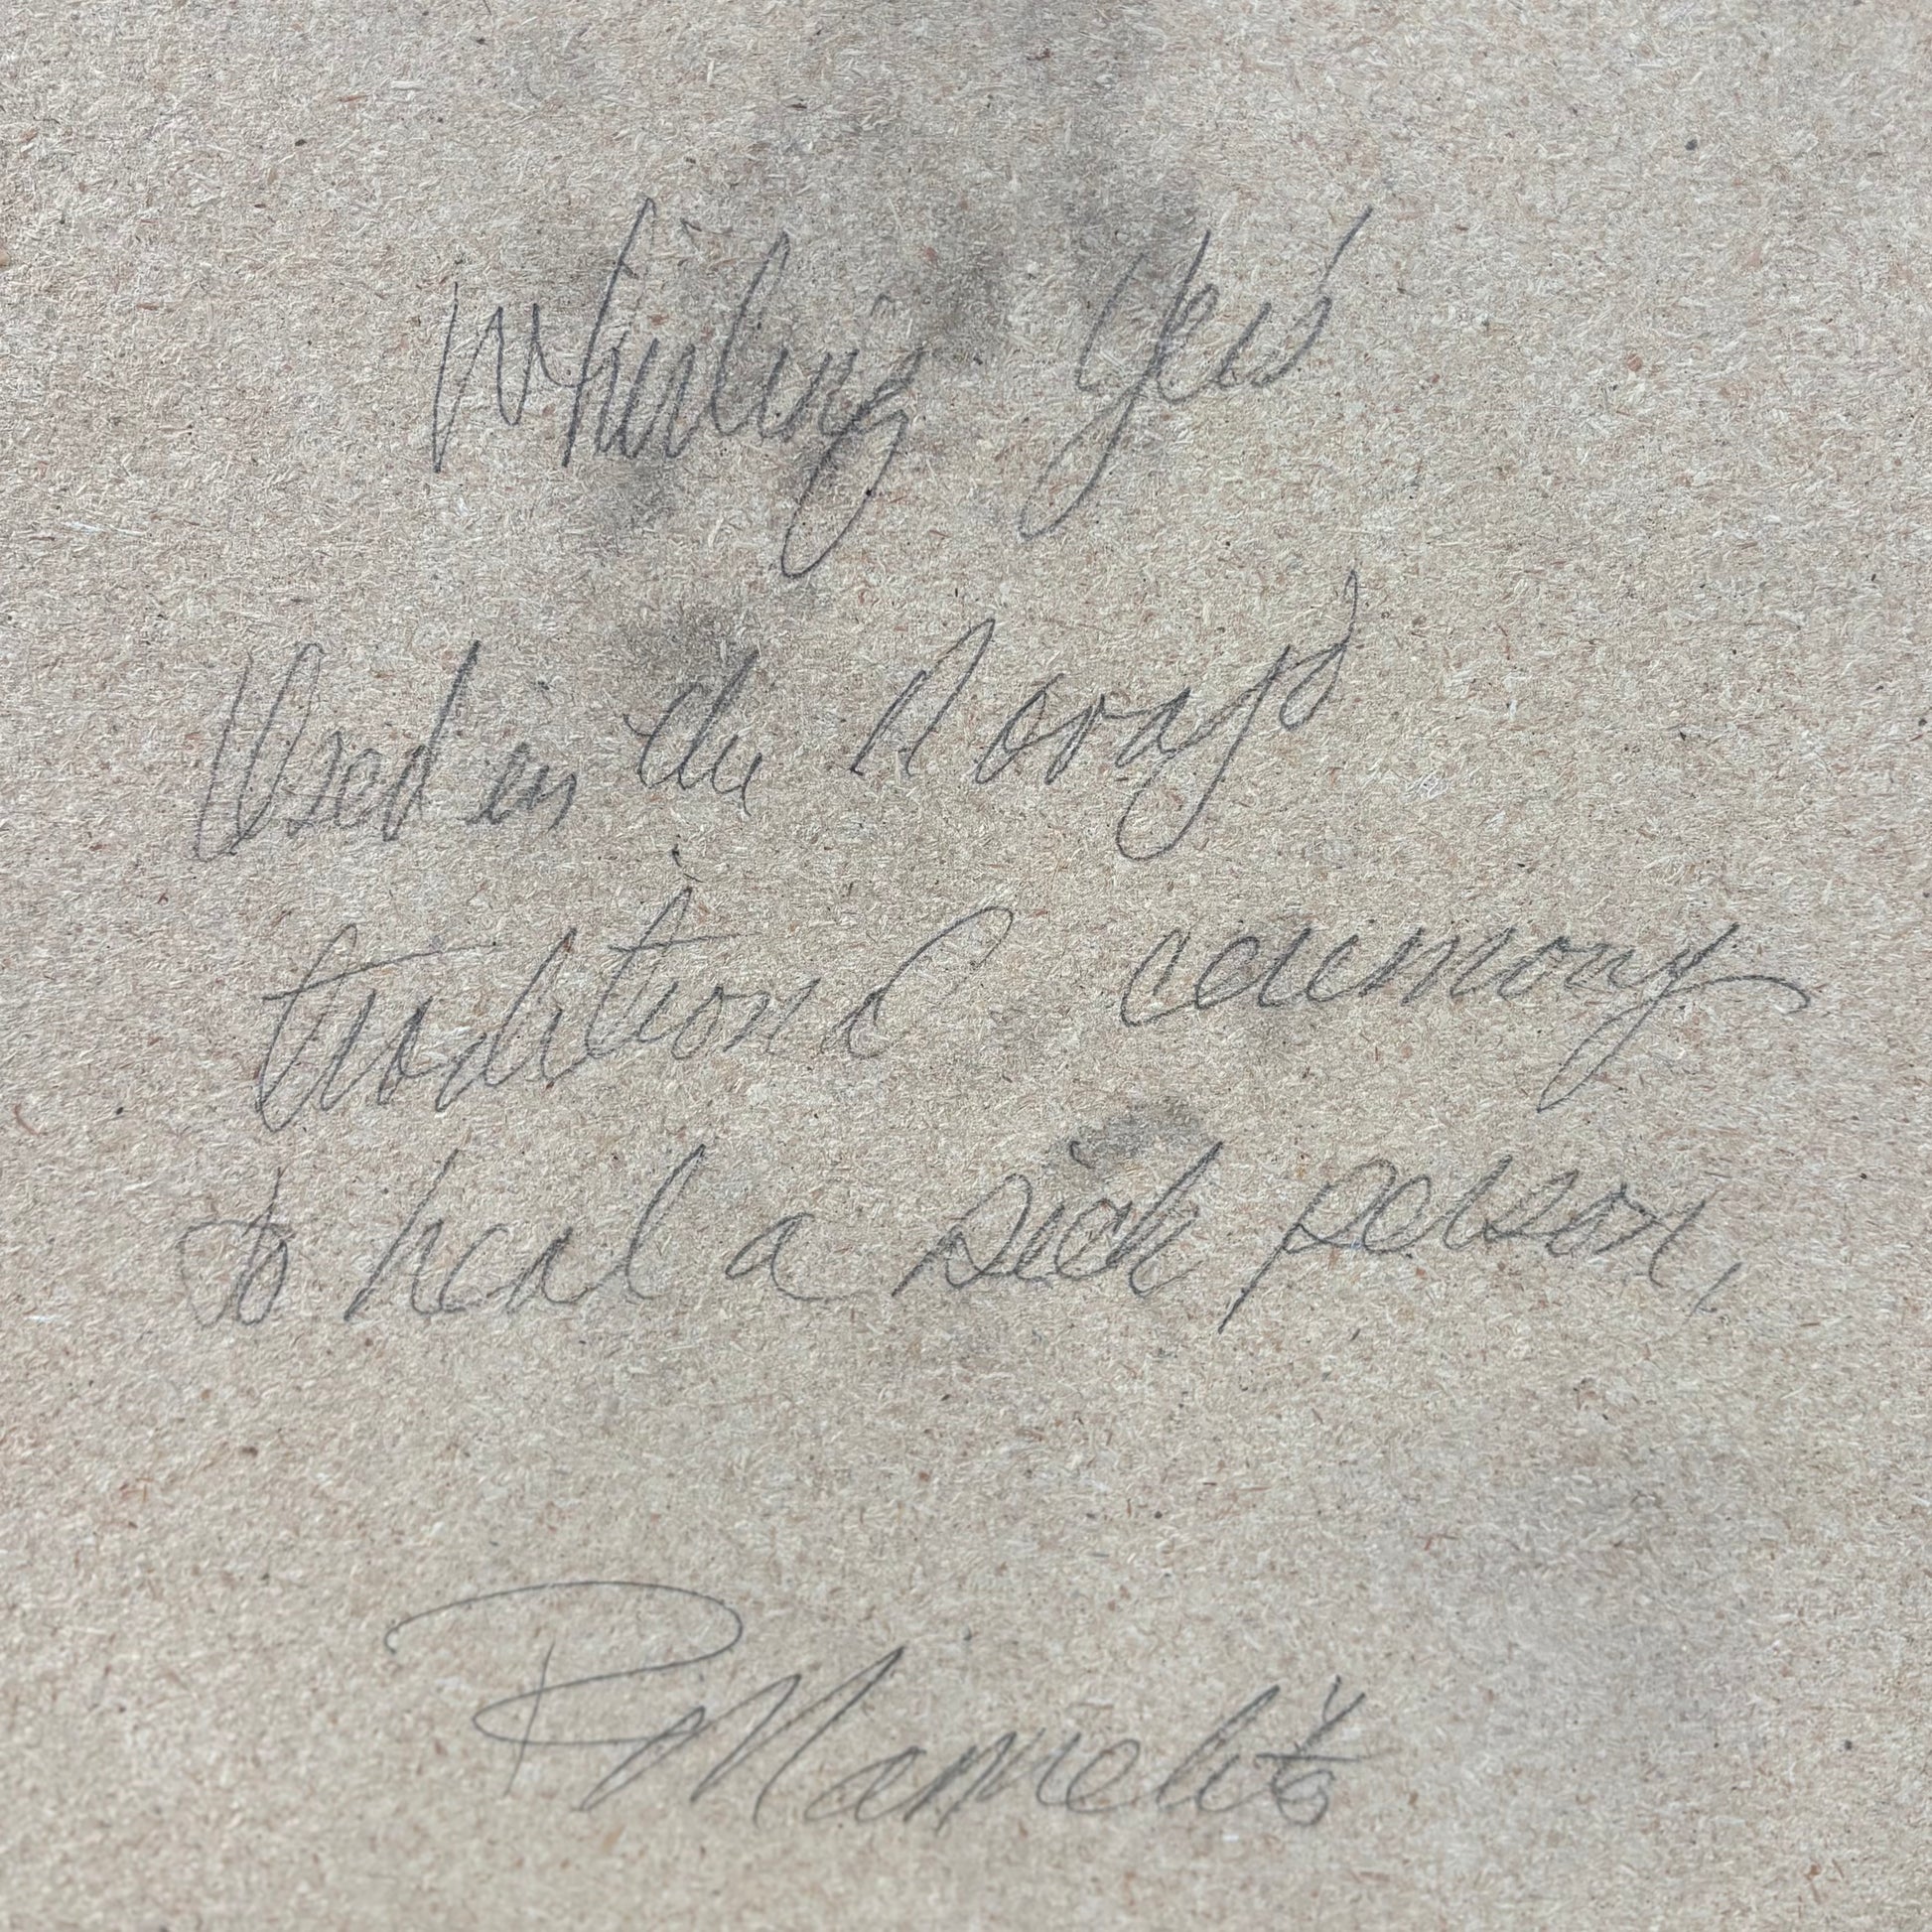 Whirling Yeis
Used in the Navajo
traditional ceremony
to heal a sick person,
P Manuelito